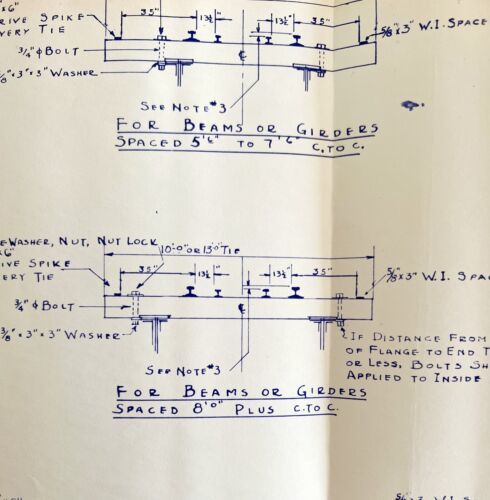 "x6"
RIVE SPIKE
VERY TIE
35"
13½"
13½"
35"
⅝" x 3" W.I. SPACE
¾" φ BOLT
⅜" x 3" x 3" WASHER
℄
SEE NOTE #3
FOR BEAMS OR GIRDERS
SPACED 5'6" TO 7'6" C. TO C.
E WASHER, NUT, NUT LOCK
x6"
RIVE SPIKE
ERY TIE
10'-0" OR 13'-0" TIE
35"
13½"
13½"
35"
⅝" x 3" W.I. SPA
¾" φ BOLT
⅜" x 3" x 3" WASHER
℄
SEE NOTE #3
IF DISTANCE FROM
OF FLANGE TO END T
OR LESS, BOLTS SH
APPLIED TO INSIDE
FOR BEAMS OR GIRDERS
SPACED 8'0" PLUS C. TO C.